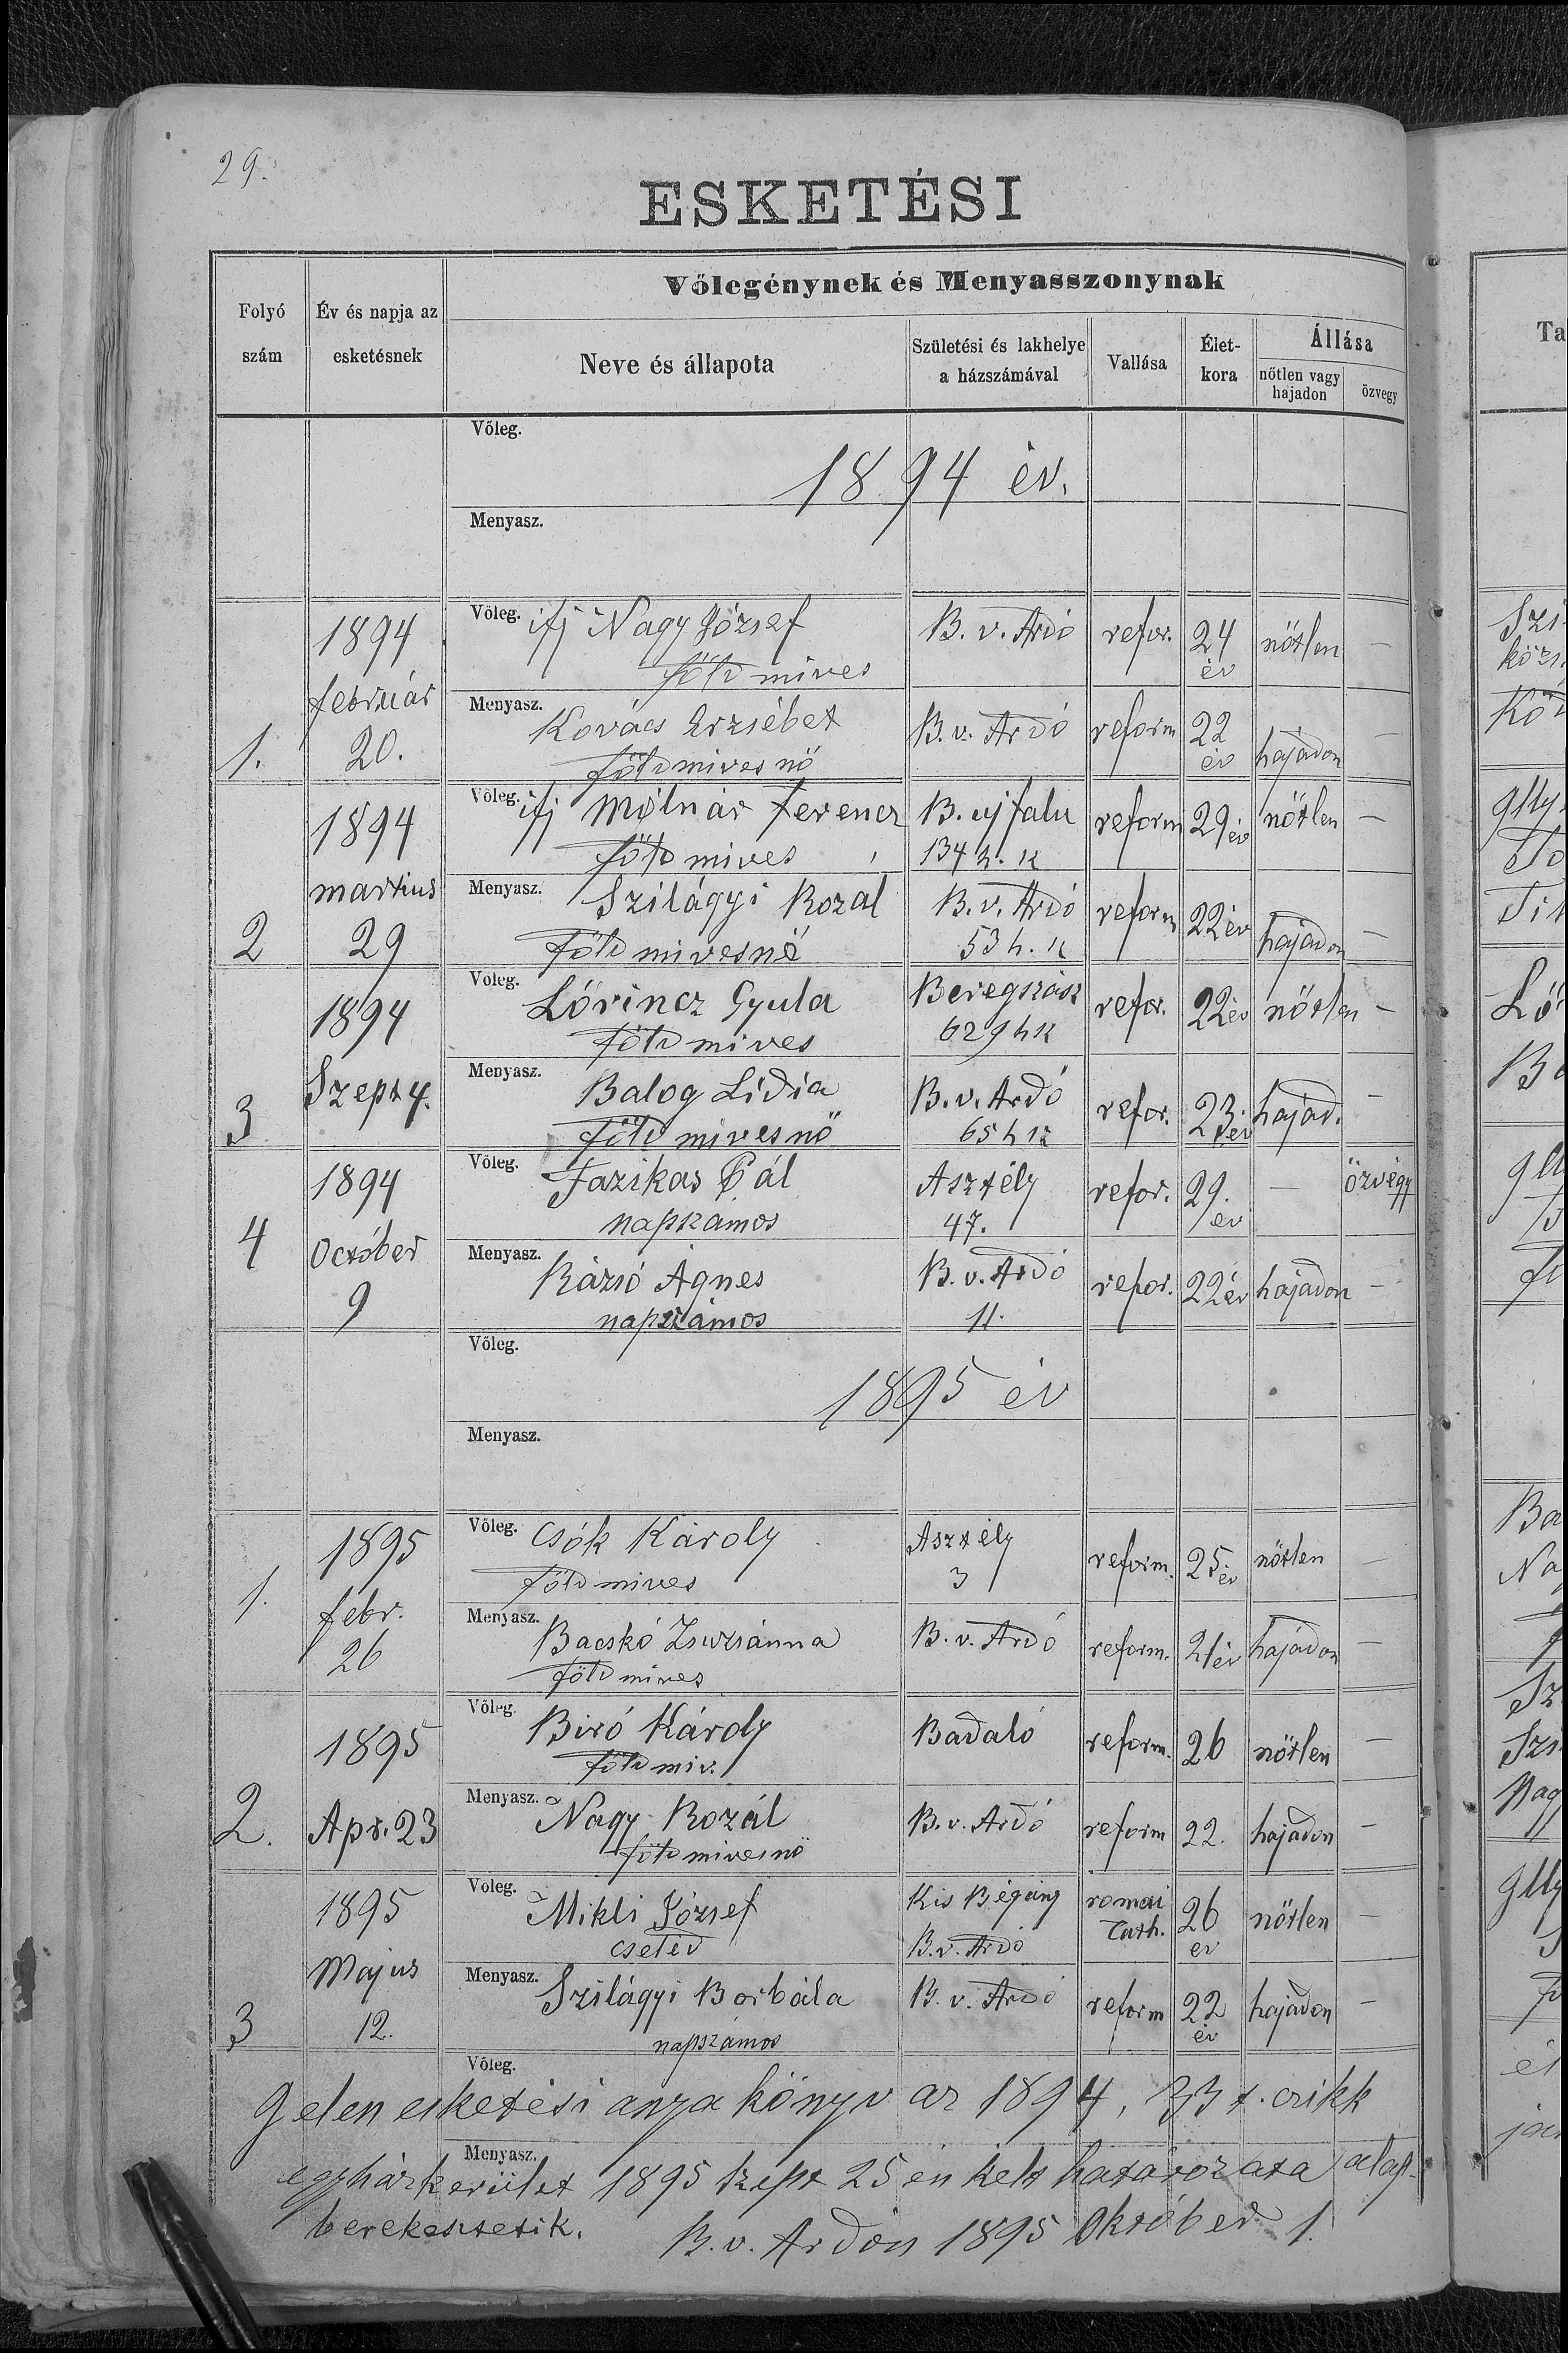 29.
ESKETÉSI
Folyó szám
Év és napja az esketésnek
Vőlegénynek és Menyasszonynak
Neve és állapota
Születési és lakhelye a házszámával
Vallása
Élet-kora
Állása
nőtlen vagy hajadon
özvegy
Vőleg.
1894 év.
Menyasz.
1894 február 20.
1.
Vőleg. ifj Nagy József B. v. Ardó refor. 24 nőtlen —
földmives év
Menyasz. Kovács Erzsébet B. v. Ardó reform 22 hajadon —
földmivesnő év
1894 martius 29
2
Vőleg. ifj Molnár Ferencz B. ujfalu reform 29 év nőtlen —
földmives 134 h. sz
Menyasz. Szilágyi Rozál B. v. Ardó reform 22 év hajadon —
földmivesnő 53 h. sz
1894 Szept 4.
3
Vőleg. Lőrincz Gyula Beregszász refor. 22 év nőtlen —
földmives 629 h sz
Menyasz. Balog Lidia B. v. Ardó refor. 23. év hajad. —
földmivesnő 65 h sz
1894 October 9
4
Vőleg. Fazikas Pál Asztély refor. 29. év — özvegy
napszamos 47.
Menyasz. Rázsó Ágnes B. v. Ardó refor. 22 év hajadon —
napszámos 11.
Vőleg.
1895 év
Menyasz.
1895 febr. 26
1.
Vőleg. Csók Károly Asztély reform. 25 év nőtlen —
földmives 3
Menyasz. Bacskó Zsuzsánna B. v. Ardó reform. 21 év hajadon —
földmives
1895 Apr. 23
2.
Vőleg. Biró Károly Badaló reform. 26 nőtlen —
földmiv.
Menyasz. Nagy Rozál B. v. Ardó reform 22. hajadon —
földmivesnő
1895 Majus 12.
3
Vőleg. Mikli József Kis Bégány romai 26 nőtlen —
cseléd B. v. Ardó Cath. év
Menyasz. Szilágyi Borbála B. v. Ardó reform 22 hajadon —
napszámos év
Vőleg.
Jelen esketési anya könyv az 1894, 33 t. czikk
Menyasz.
egyházkerület 1895 szept 25 én kelt határozata alap-
berekesztetik.
B. v. Ardón 1895 Október 1.
Ta